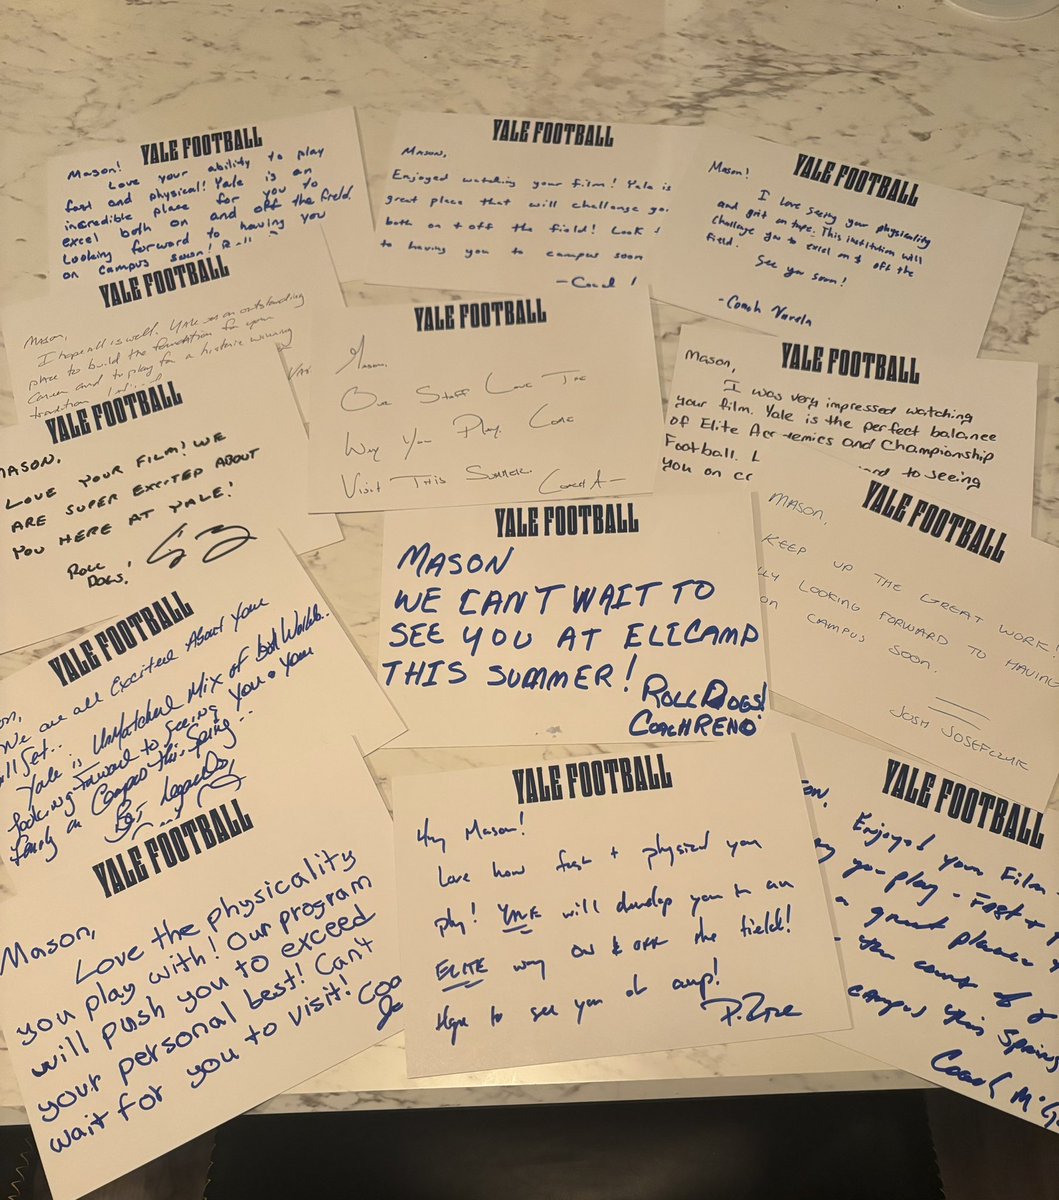 YALE FOOTBALL
Mason!
Love your ability to play
fast and physical! Yale is an
incredible place for you to
excel both on and off the field.
Looking forward to having you
on campus soon! Roll
YALE FOOTBALL
Mason,
Enjoyed watching your film! Yale is
great place that will challenge
both on + off the field! Look
to having you to campus soon
YALE FOOTBALL
Mason!
I love seeing your physicality
and grit on tape. This institution will
challenge you to excel on & off the
field.
See you soon!
-Coach Varela
YALE FOOTBALL
Mason,
I hope all is well. Yale is an outstanding
place to build the foundation for your
career and to play for a historic winning
tradition
YALE FOOTBALL
Mason,
Our Staff Love The
Way You Play. Come
Visit This Summer.
Coach A-
YALE FOOTBALL
Mason,
I was very impressed watching
your film. Yale is the perfect balance
of Elite Academics and Championship
Football. L
to seeing
you on
YALE FOOTBALL
MASON,
LOVE YOUR FILM! WE
ARE SUPER EXCITED ABOUT
YOU HERE AT YALE!
ROLL
DOGS!
YALE FOOTBALL
MASON
WE CAN'T WAIT TO
SEE YOU AT ELICAMP
THIS SUMMER!
ROLL DOGS!
COACH RENO
YALE FOOTBALL
MASON,
KEEP UP THE GREAT WORK!
LOOKING FORWARD TO HAVING
ON CAMPUS SOON.
JOSH JOSEFCZYK
YALE FOOTBALL
We are all Excited About your
Skill Set..
Yale is UnMatched Mix of both Worlds..
looking forward to seeing you & your
family on Campus this Spring..
Best Regards,
YALE FOOTBALL
Mason,
Love the physicality
you play with! Our program
will push you to exceed
your personal best! Can't
wait for you to visit!
YALE FOOTBALL
Hey Mason!
Love how fast + physical you
play! YALE will develop you in an
ELITE way on & off the field!
Hope to see you at camp!
YALE FOOTBALL
Enjoyed your Film
you play - Fast +
a great place
campus this Spring
Coach McG